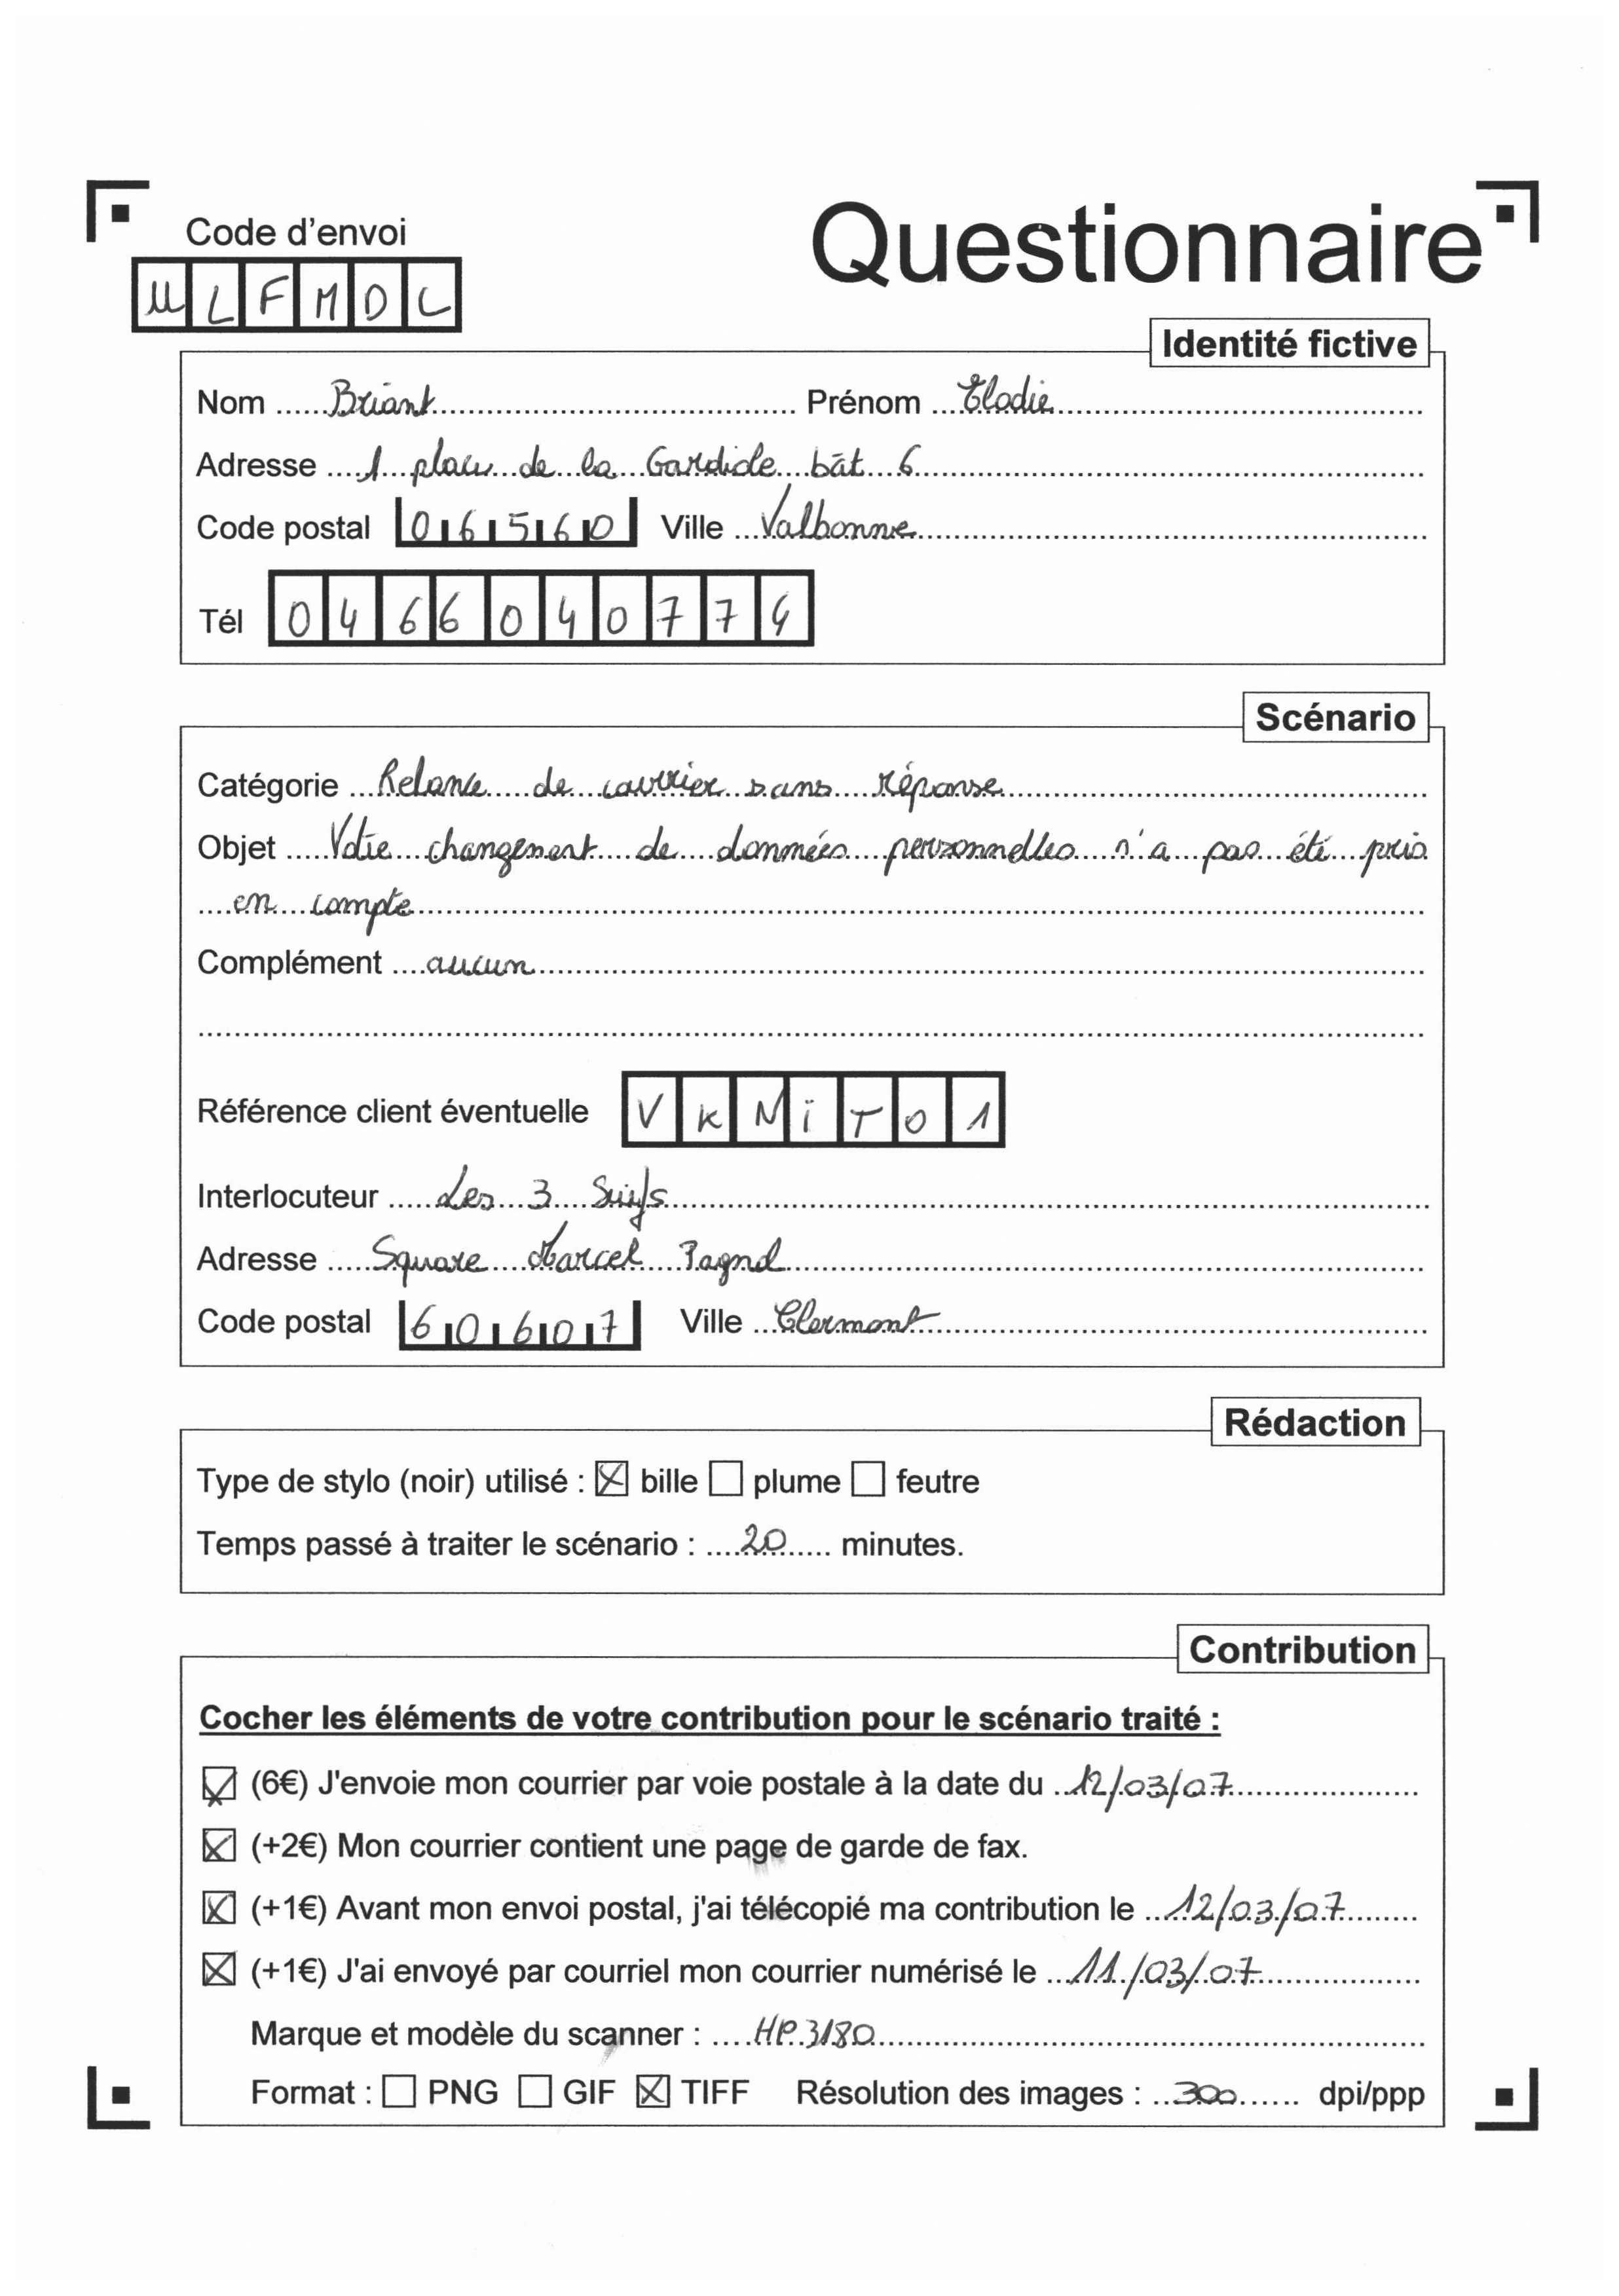 Questionnaire
Code d'envoi
MLFMDL
Identité fictive
Nom Briant Prénom Elodie
Adresse 1 place de la Gardiole bât 6
Code postal 06560 Ville Valbonne
Tél 0466040774
Scénario
Catégorie Relance de courrier sans réponse
Objet Votre changement de données personnelles n'a pas été pris
en compte
Complément aucun
Référence client éventuelle VKNiTO1
Interlocuteur Les 3 Suiss
Adresse Square Marcel Pagnol
Code postal 60607 Ville Clermont
Rédaction
Type de stylo (noir) utilisé : bille plume feutre
Temps passé à traiter le scénario : 20 minutes.
Contribution
Cocher les éléments de votre contribution pour le scénario traité :
(6€) J'envoie mon courrier par voie postale à la date du 12/03/07
(+2€) Mon courrier contient une page de garde de fax.
(+1€) Avant mon envoi postal, j'ai télécopié ma contribution le 12/03/07
(+1€) J'ai envoyé par courriel mon courrier numérisé le 11/03/07
Marque et modèle du scanner : HP 3180
Format : PNG GIF TIFF Résolution des images : 300 dpi/ppp